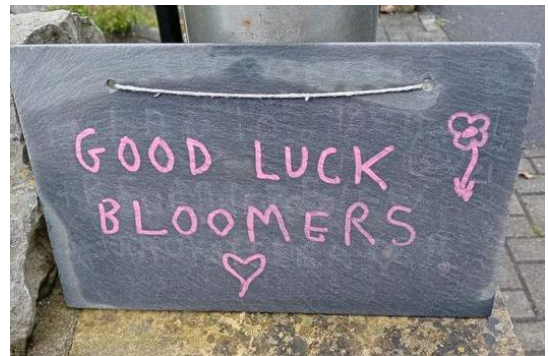 GOOD LUCK
BLOOMERS